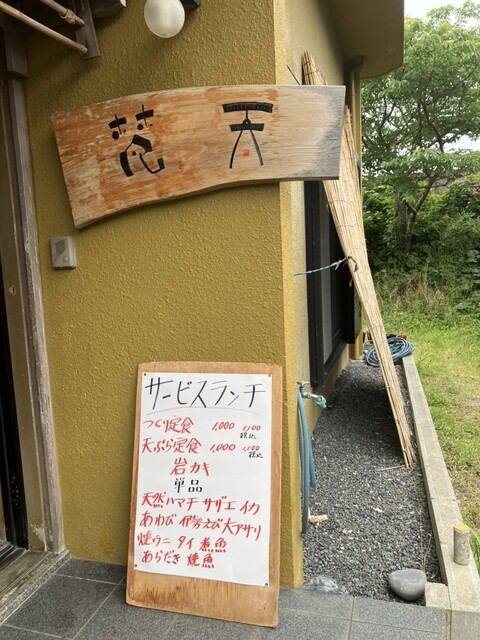 梵天
サービスランチ
つくり定食 1,000 1,100 税込
天ぷら定食 1,000 1,100 税込
岩カキ
単品
天然ハマチ サザエ イカ
あわび 伊勢えび 大アサリ
焼ウニ タイ 煮魚
あらだき 焼魚